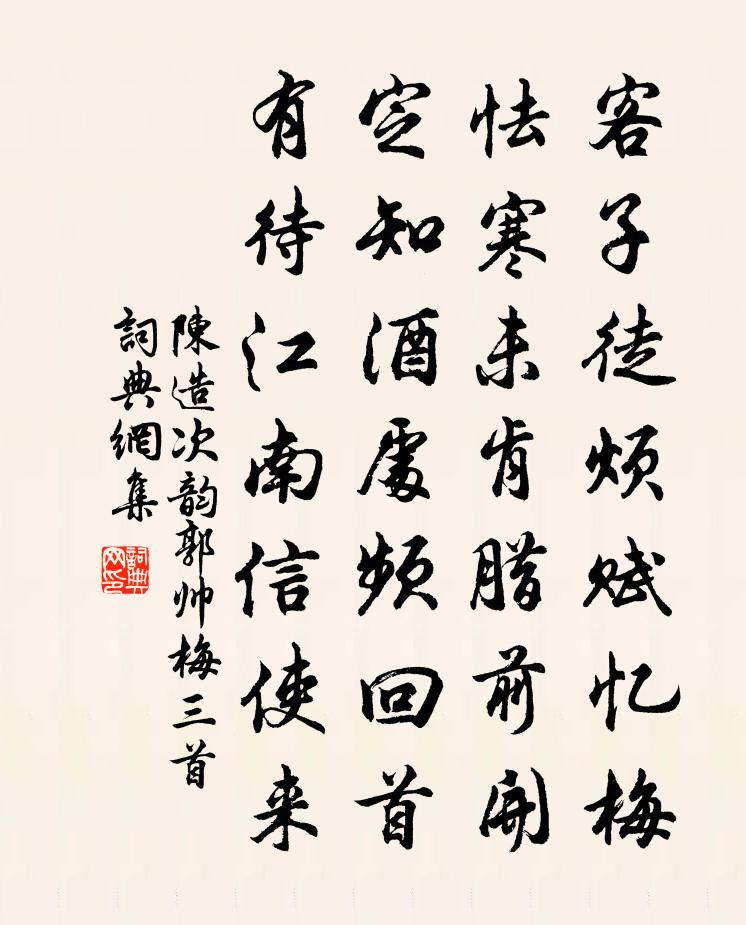 客子徒烦赋忆梅
怯寒未肯腊前开
定知酒处频回首
有待江南信使来
陳造次韵郭帅梅三首
詞典網集
詞典网印